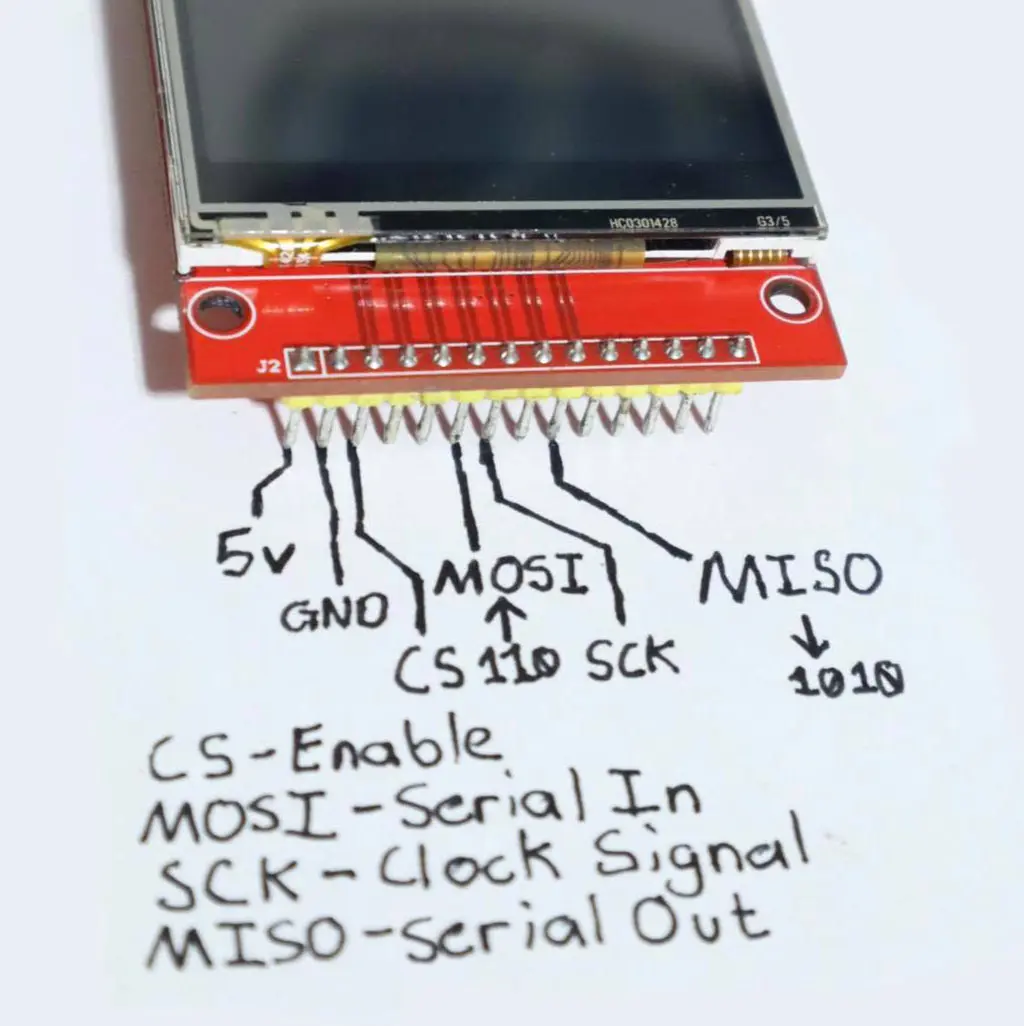 HC0301428 G3/5
J2
5v
GND
MOSI
MISO
CS 110 SCK
1010
CS-Enable
MOSI-Serial In
SCK-Clock Signal
MISO-Serial Out